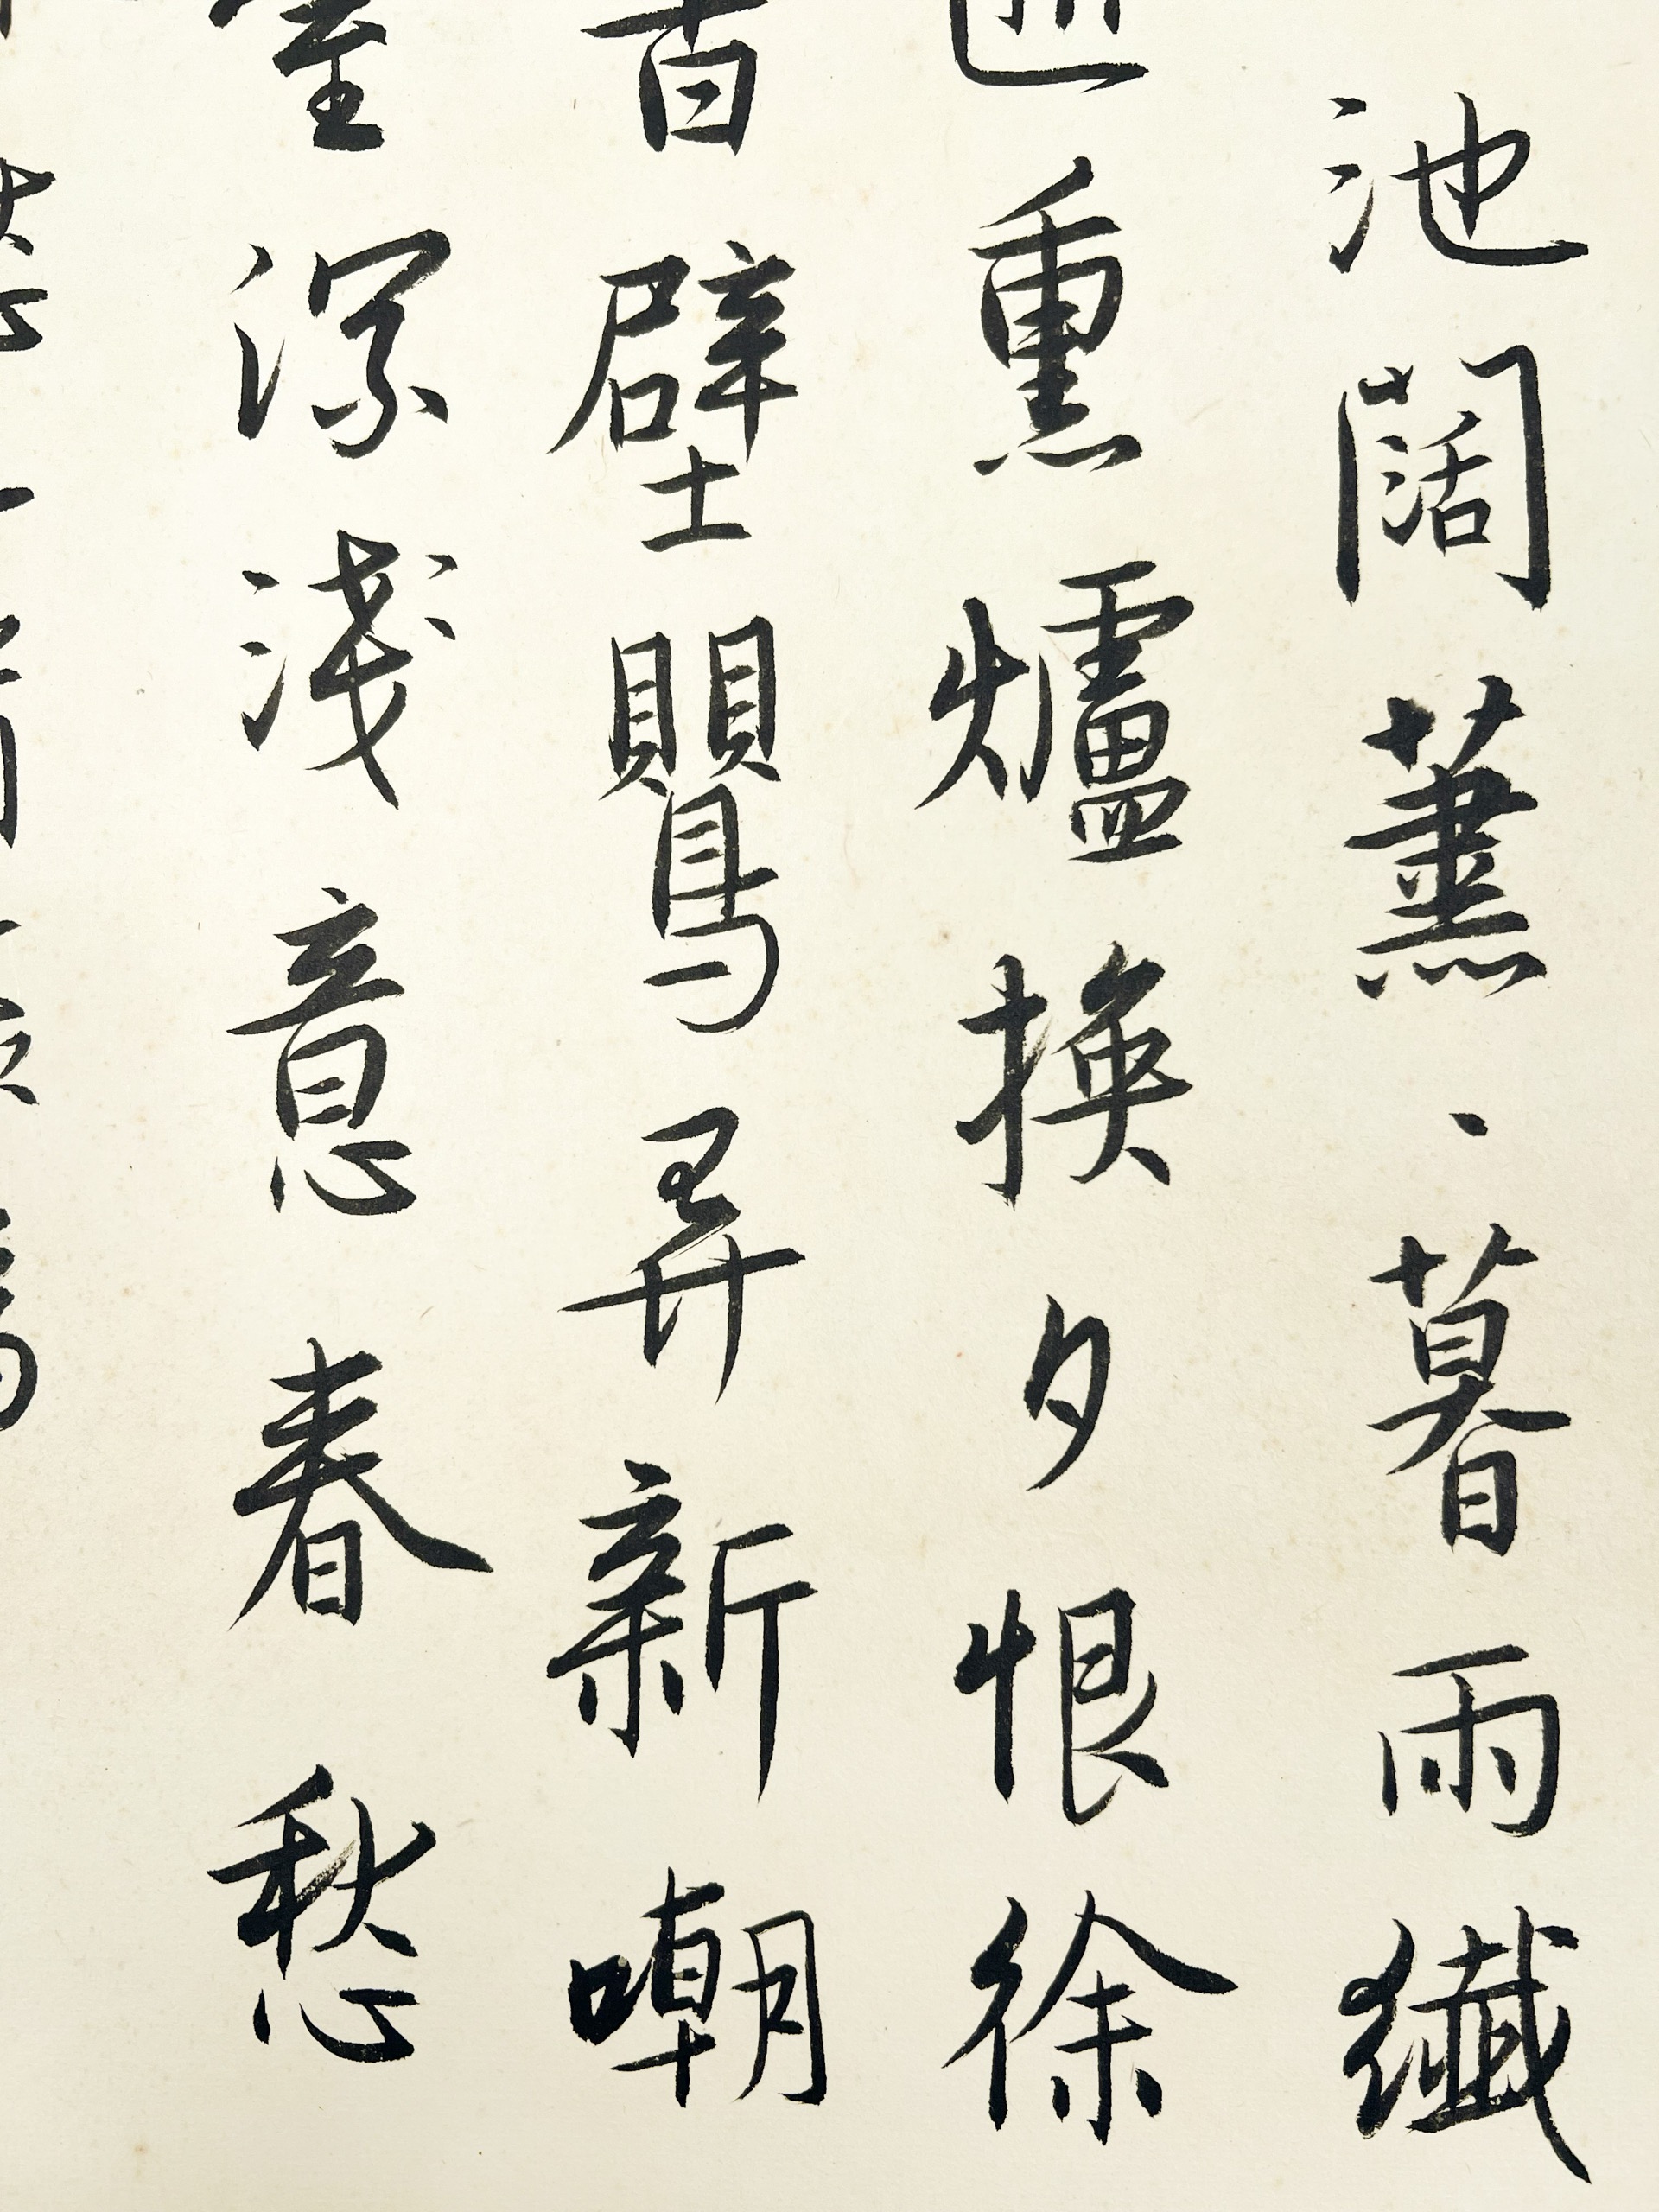 池闊蕭、暮雨纖
熏爐換夕恨徐
壁鸎弄新嘲
深淺意春愁